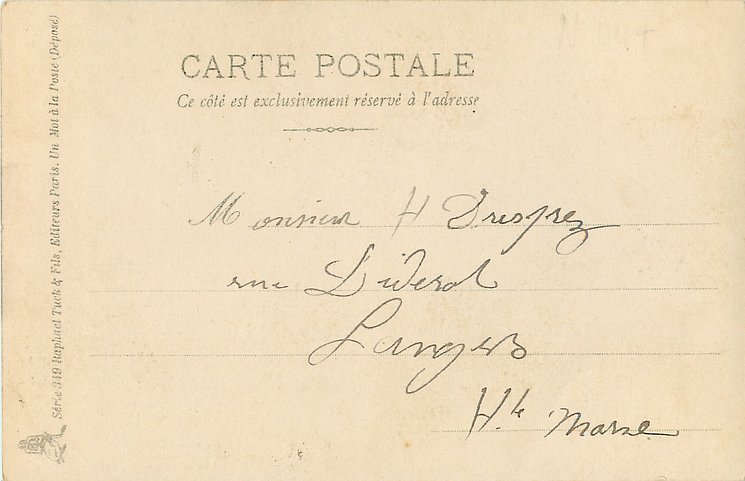 CARTE POSTALE
Ce côté est exclusivement réservé à l'adresse
Monsieur H Dresprez
rue Diderot
Langres
H.te Marne
Série 349 Raphael Tuck & Fils, Editeurs Paris. Un Mot à la Poste (Déposé)